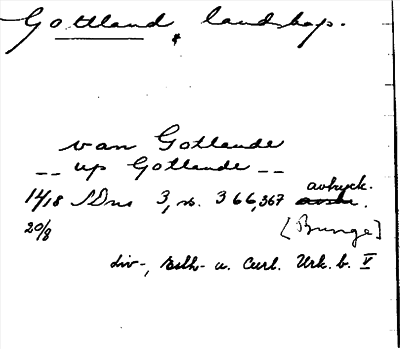 Gottland, landskap.
van Gotlande
-- up Gotlande --
14/18 SDns 3, s. 366,367 avtryck.
20/8 [Bunge]
Liv-, Esth- u. Curl. Urk. b. V